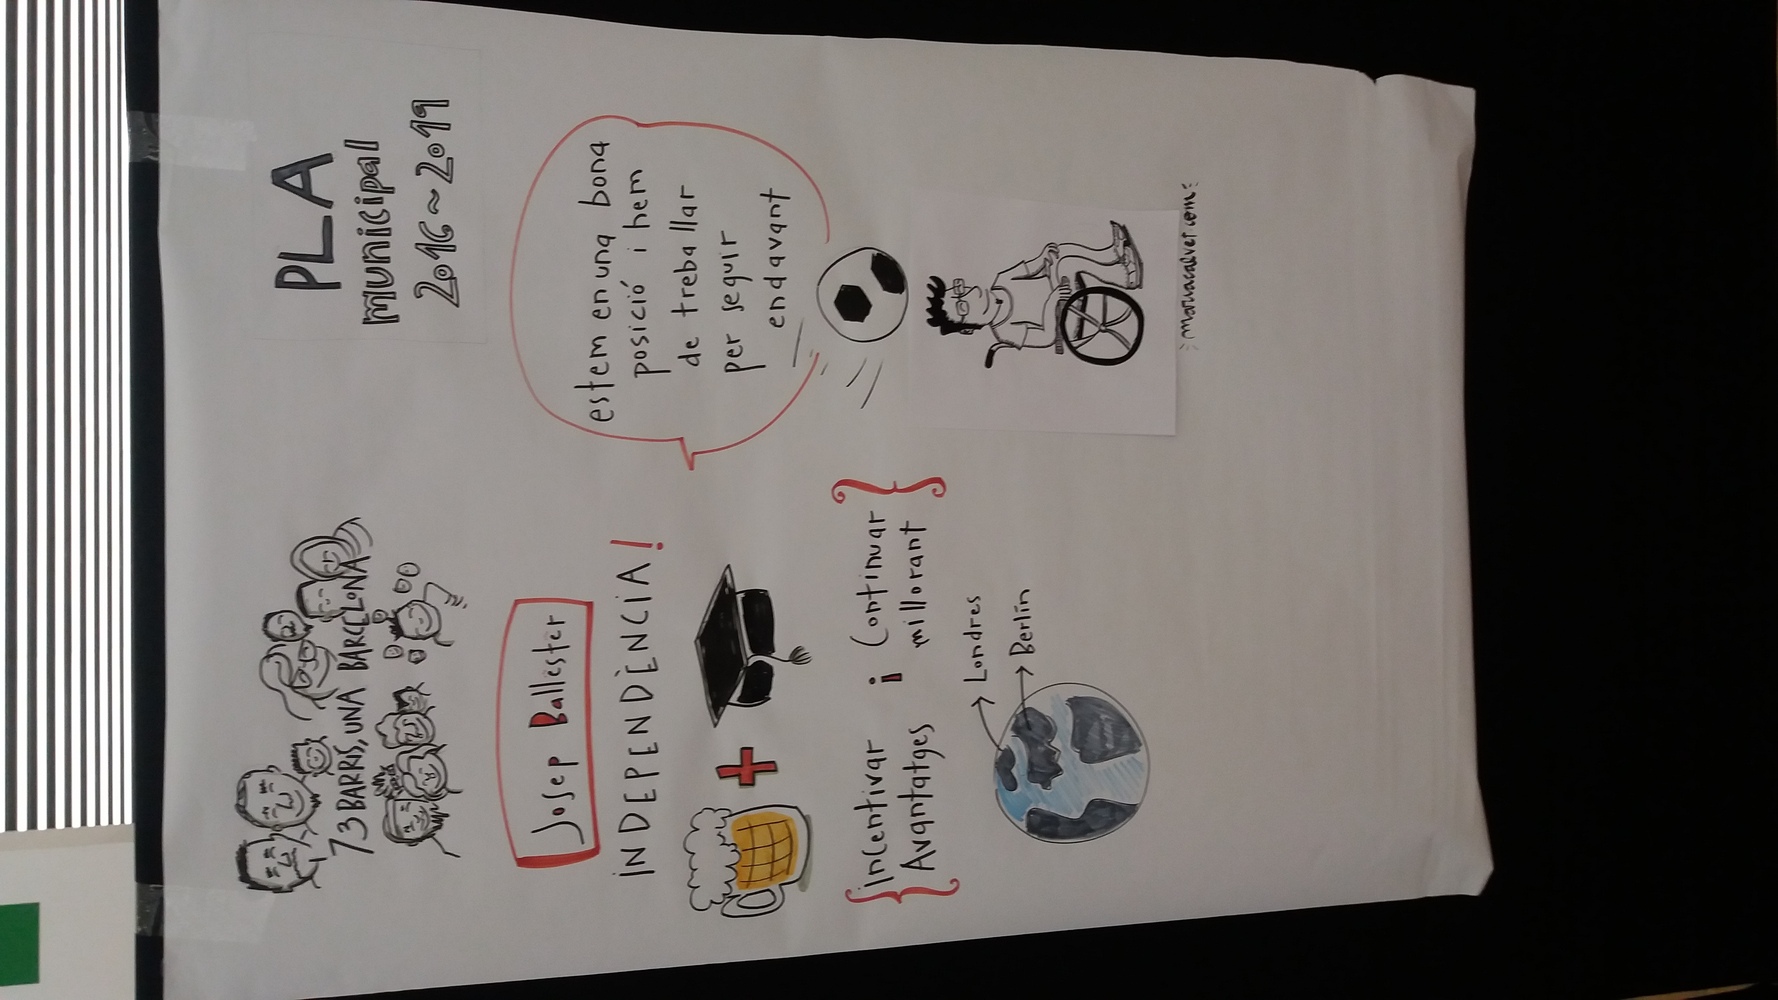 73 BARRIS, UNA BARCELONA
PLA
municipal
2016~2019
Josep Ballester
INDEPENDÈNCIA!
estem en una bona
posició i hem
de treballar
per seguir
endavant
{incentivar i Continuar}
Avantatges millorant
Londres
Berlín
mariuacalvet.com